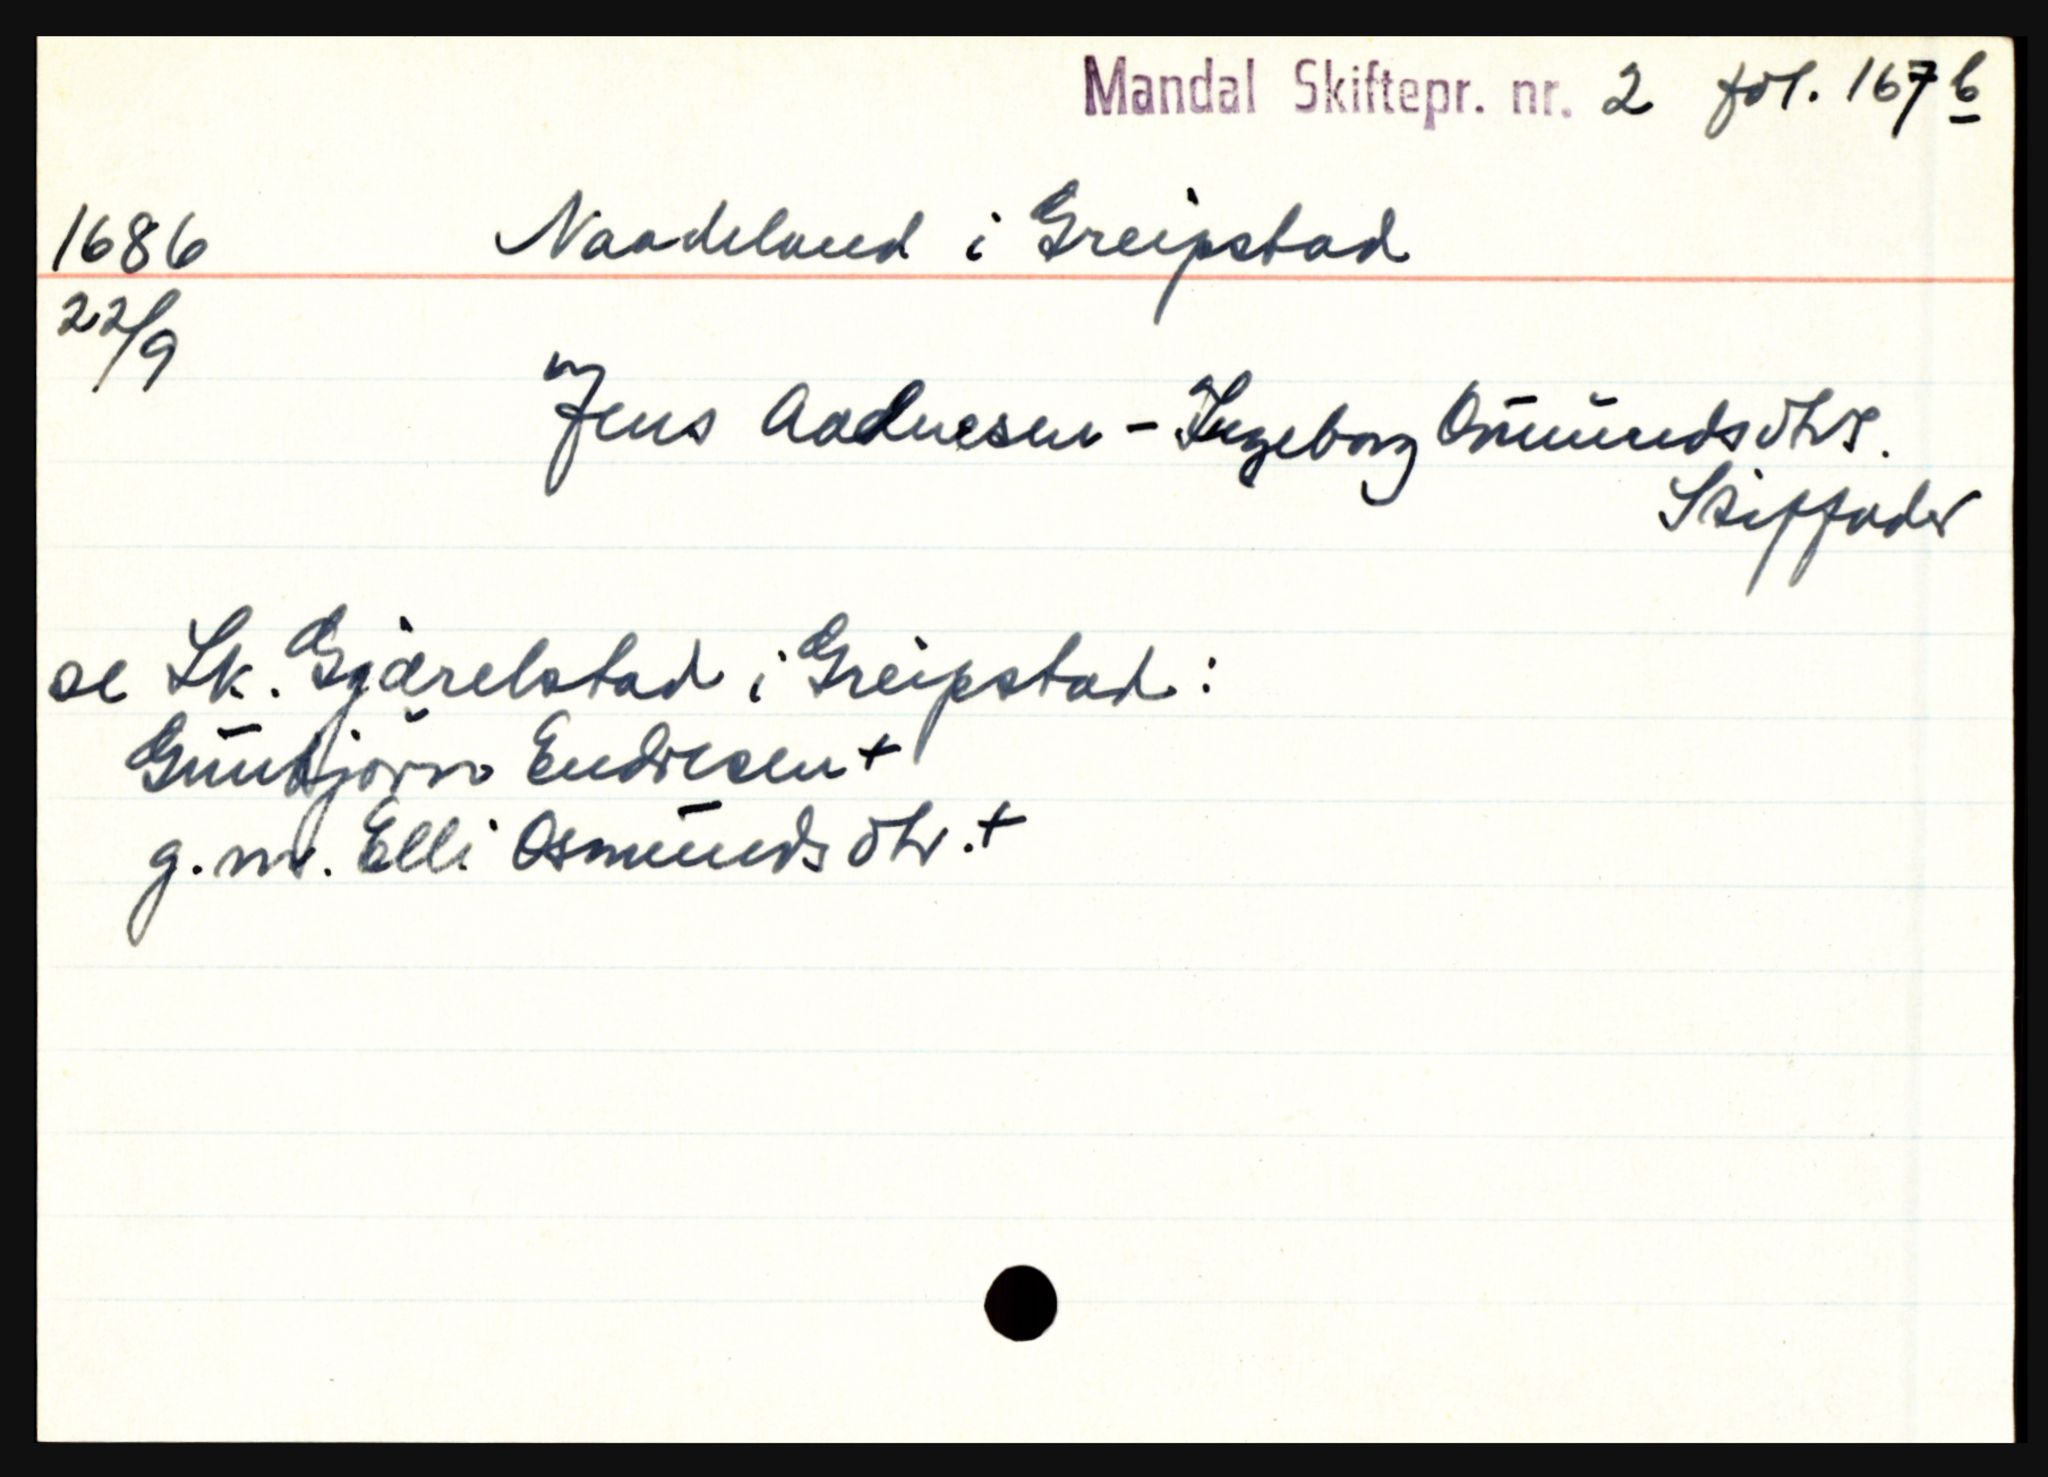 Mandal Skiftepr. nr. 2 fol. 167 b
1686 Naadeland i Greipstad
22/9
Jens Aadnesen - Ingeborg Osmundsdtrs.
Stiffader
se Sk. Gjærelstad i Greipstad:
Gunbjørn Endresen +
g.m. Elli Osmundsdtr. +